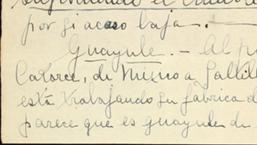 por si acaso baja. —
Guayule. — Al p
Catorce, de nuevo a Saltill
está trabajando su fabrica d
parece que es guayule de